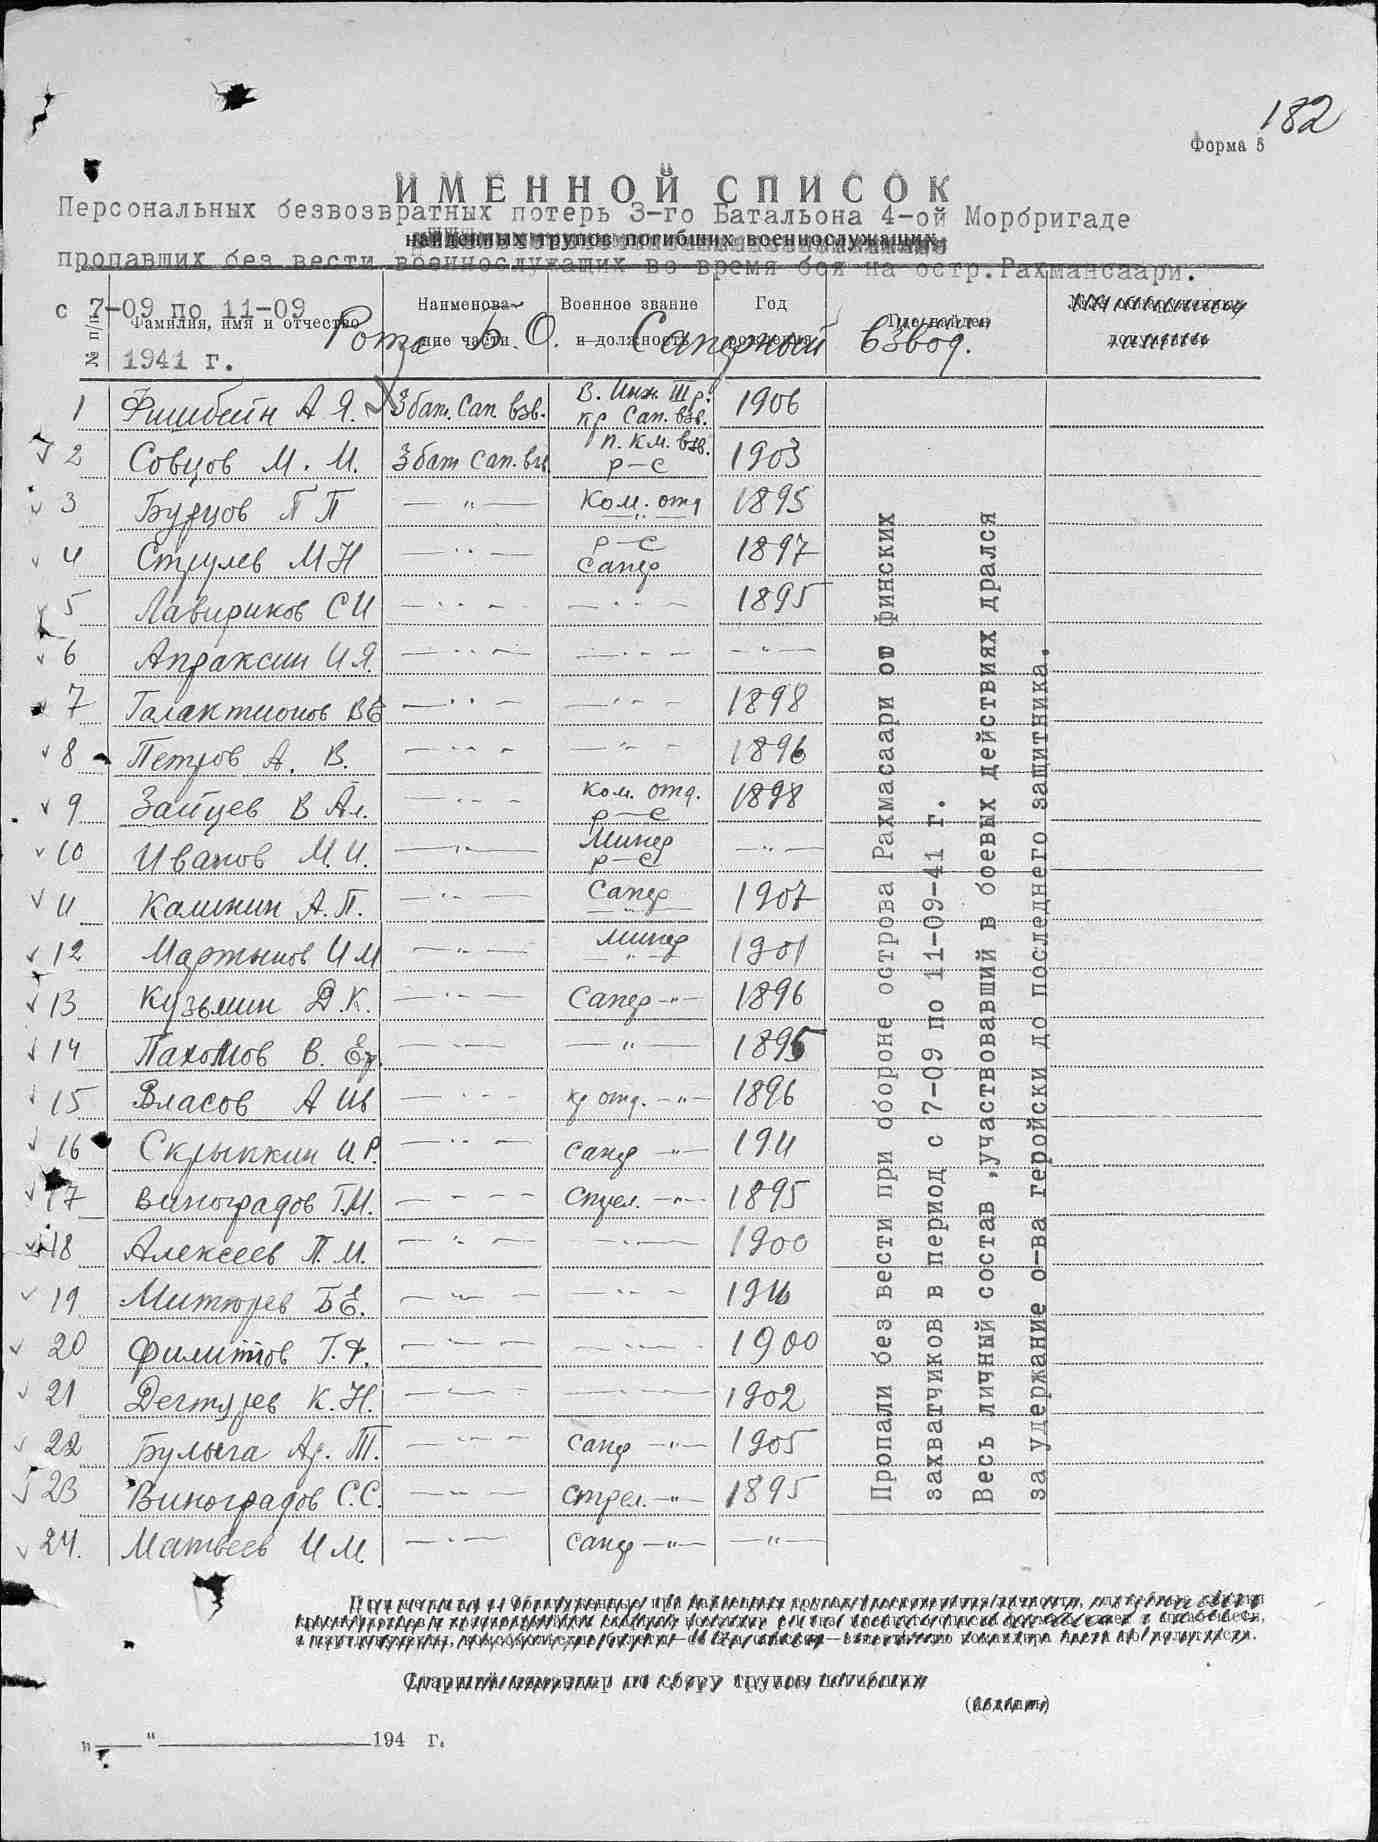 182
Форма 5
ИМЕННОЙ СПИСОК
Персональных безвозвратных потерь 3-го Батальона 4-ой Морбригаде
найденных трупов погибших военнослужащих
пропавших без вести военнослужащих во время боя на остр.Рахмансаари.
с 7-09 по 11-09
1941 г.
№ п/п Фамилия, имя и отчество Наименова-ние части Военное звание и должность Год рождения Где найден
Рота Б.О. Саперный взвод.
1 Фишбейн А. Я. 3 бат. Сап. взв. В. Инж. Шр. кр Сап. взв. 1906
2 Совцов М. И. 3 бат Сап. вз. П. Км. взв. р-с 1903
3 Бурцов П П —"— Ком. отд —"— 1895
4 Струлев М Н —"— р-с сапер 1897
5 Лавириков С И —"— —"— 1895
6 Апраксин И Я. —"— —"— —"—
7 Галактионов В Е —"— —"— 1898
8 Петров А. В. —"— —"— 1896
9 Зайцев В Ал. —"— Ком. отд. р-с 1898
10 Иванов М. И. —"— Минер р-с —"—
11 Калинин А. П. —"— Сапер —"— 1907
12 Мартынов И М —"— минер —"— 1901
13 Кузьмин Д. К. —"— Сапер —"— 1896
14 Пахомов В. Ег. —"— —"— 1895
15 Власов А Ив —"— кр отд. —"— 1896
16 Скрыпкин И. Р. —"— сапер —"— 1911
17 Виноградов Г. М. — — — — Стрел. —"— 1895
18 Алексеев П. М. —"— —"— 1900
19 Митюрев Б Е. —"— —"—
20 Филиппов Г. Ф. —"— —"— 1900
21 Дегтярев К. Н. —"— —"— 1902
22 Булыга Ар. Т. —"— сапер —"— 1905
23 Виноградов С. С. —"— стрел. —"— 1895
24. Матвеев И М. —"— сапер —"— —"—
Пропали без вести при обороне острова Рахмасаари от финских
захватчиков в период с 7-09 по 11-09-41 г.
Весь личный состав ,участвовавший в боевых действиях дрался
за удержание о-ва геройски до последнего защитника.
Старший команды по сбору трупов погибших
"___"___________194 г.